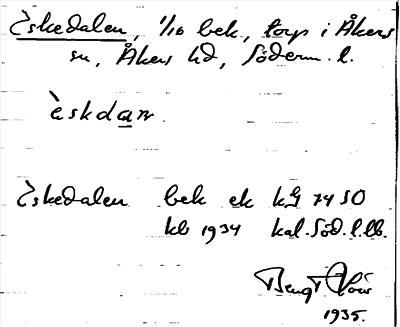 Èskedalen, 1/10 bek, torp i Åkers
sn, Åkers hd, Söderm. l.
èskdan
Èskedalen bek ek kG 74 SO
kb 1934 kal. Söd. l. lb.
Bengt
1935.